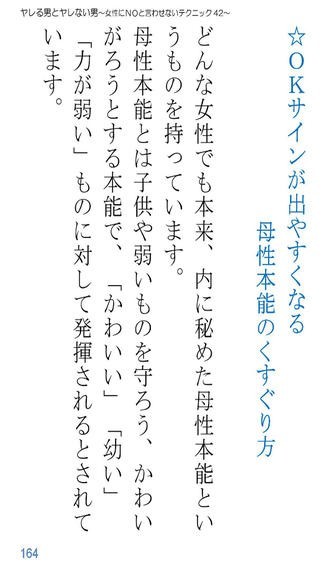 ヤレる男とヤレない男～女性にNOと言わせないテクニック42～
☆OKサインが出やすくなる
母性本能のくすぐり方
どんな女性でも本来、内に秘めた母性本能とい
うものを持っています。
母性本能とは子供や弱いものを守ろう、かわい
がろうとする本能で、「かわいい」「幼い」
「力が弱い」ものに対して発揮されるとされて
います。
164